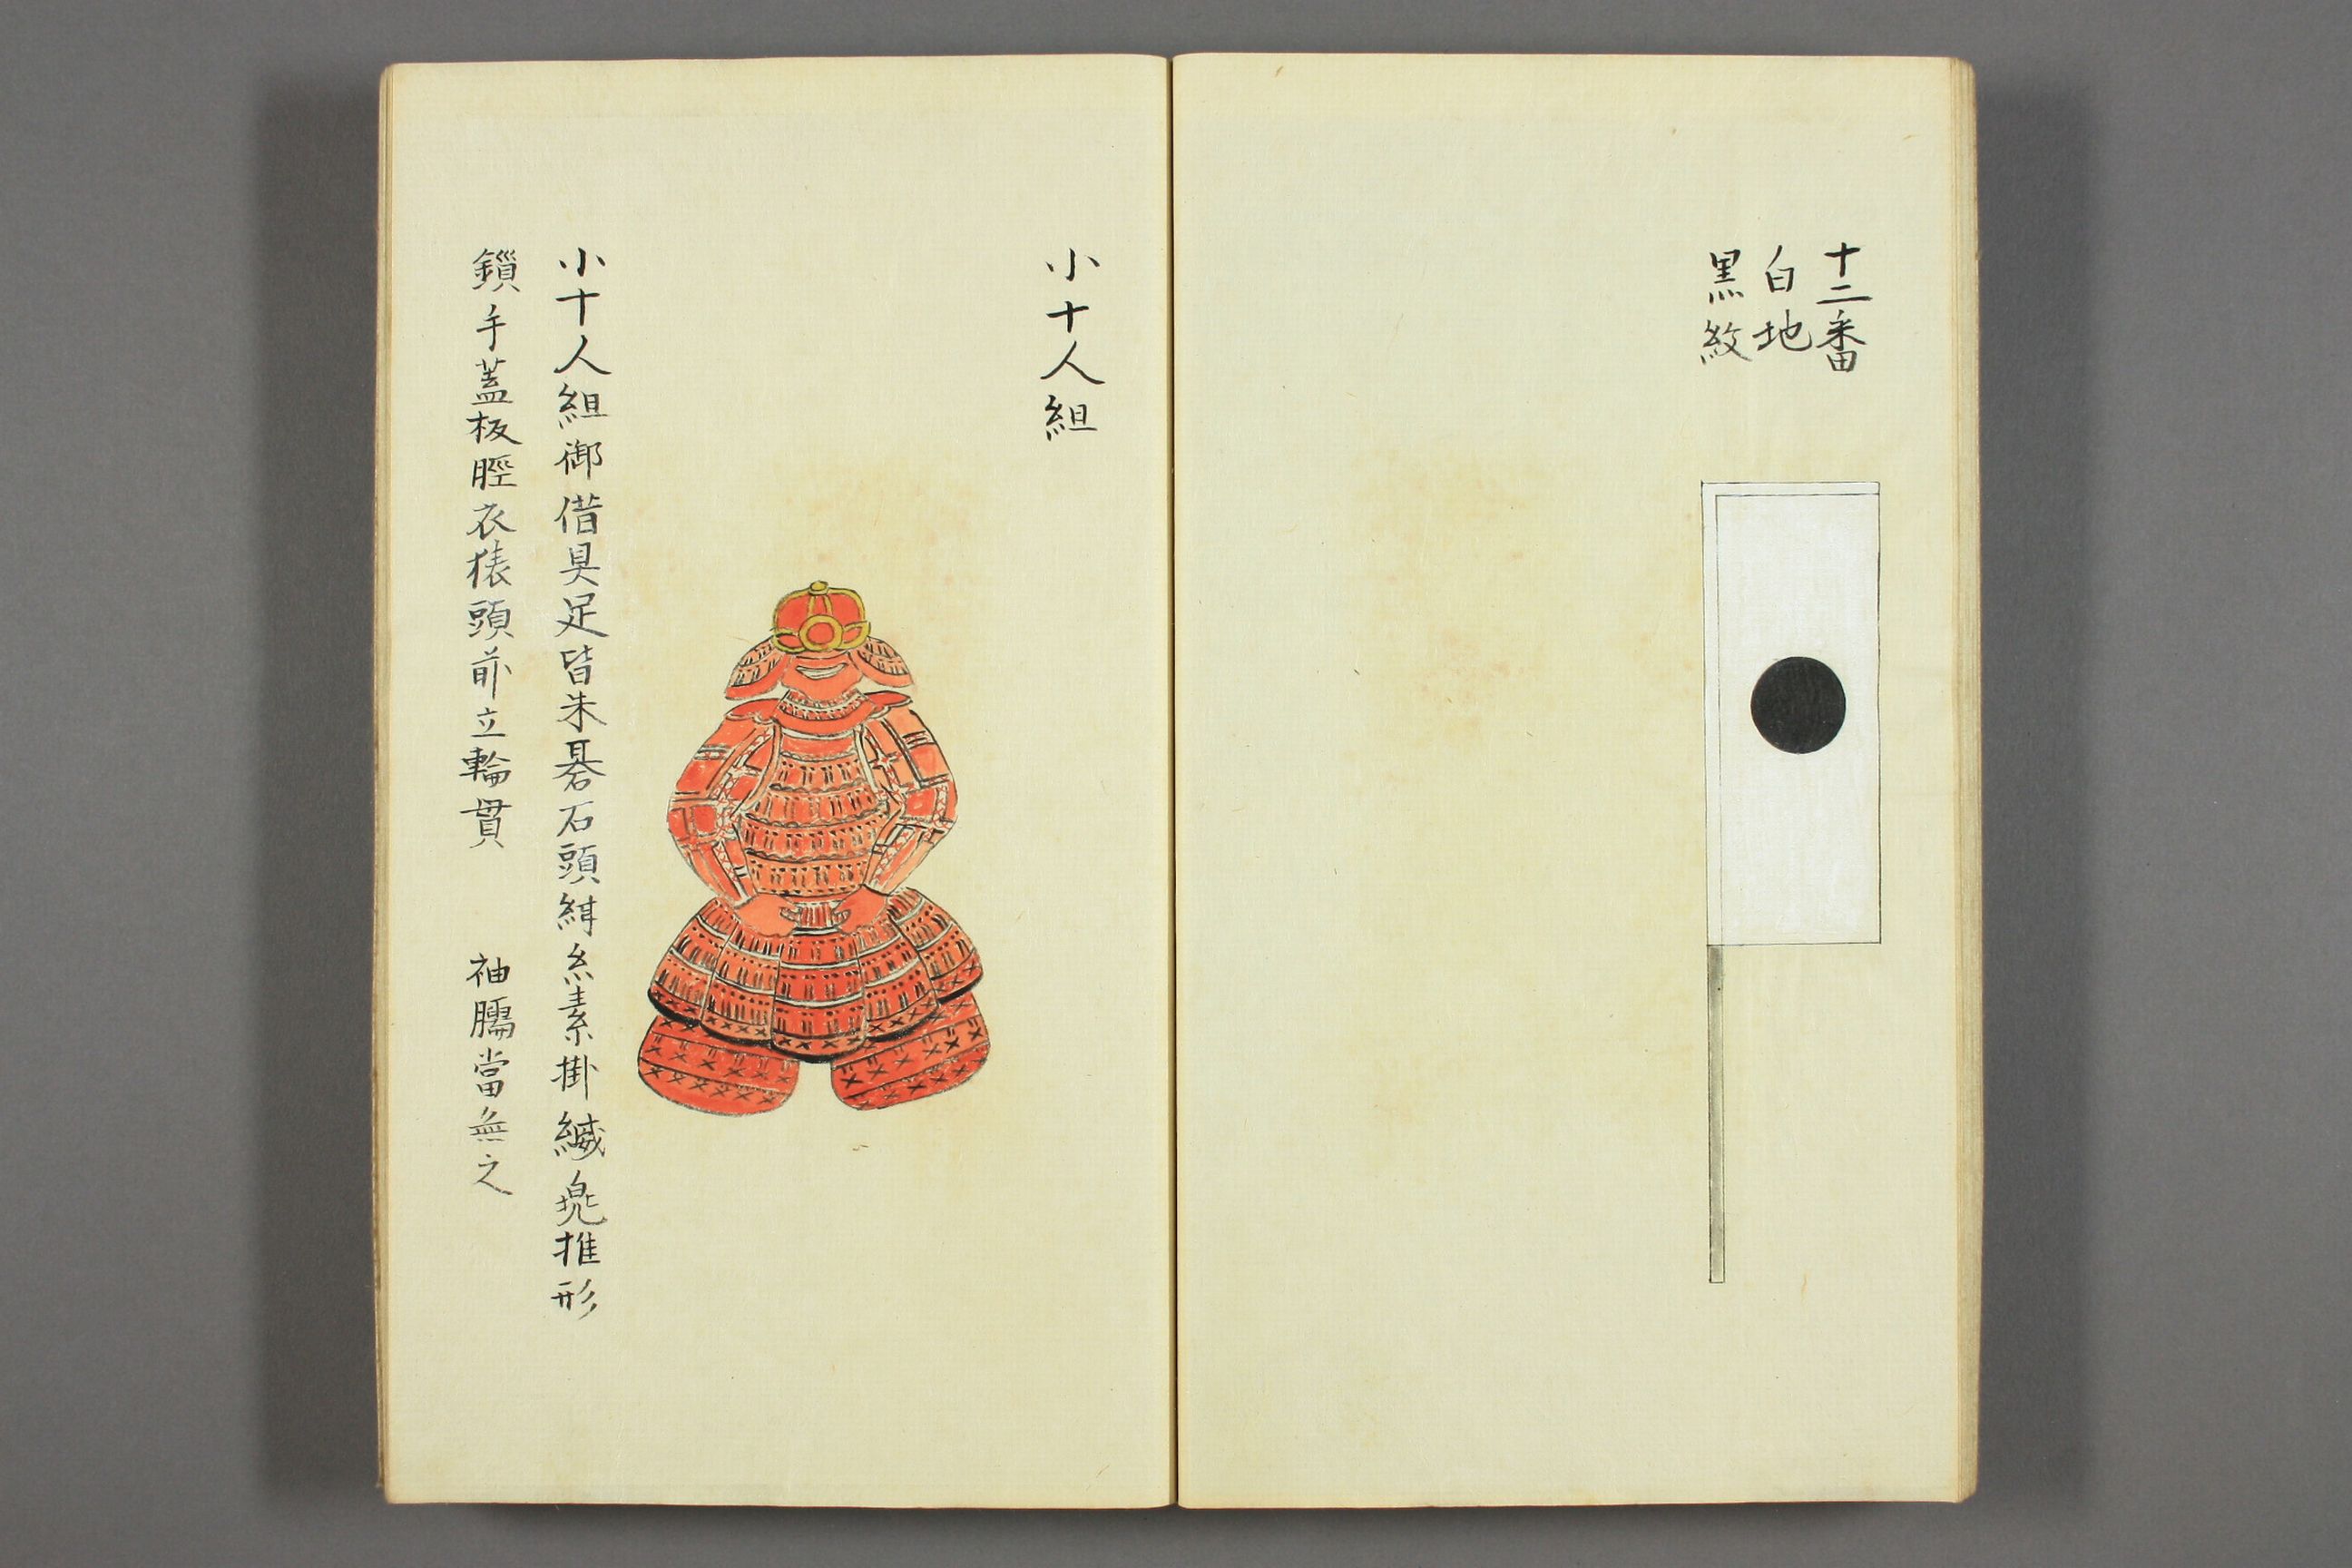 十二番
白地
黒紋
小十人組
小十人組御借具足皆朱碁石頭縜糸素掛縅兜推形
鎻手蓋板脛衣猿頭前立輪貫　袖臑當無之